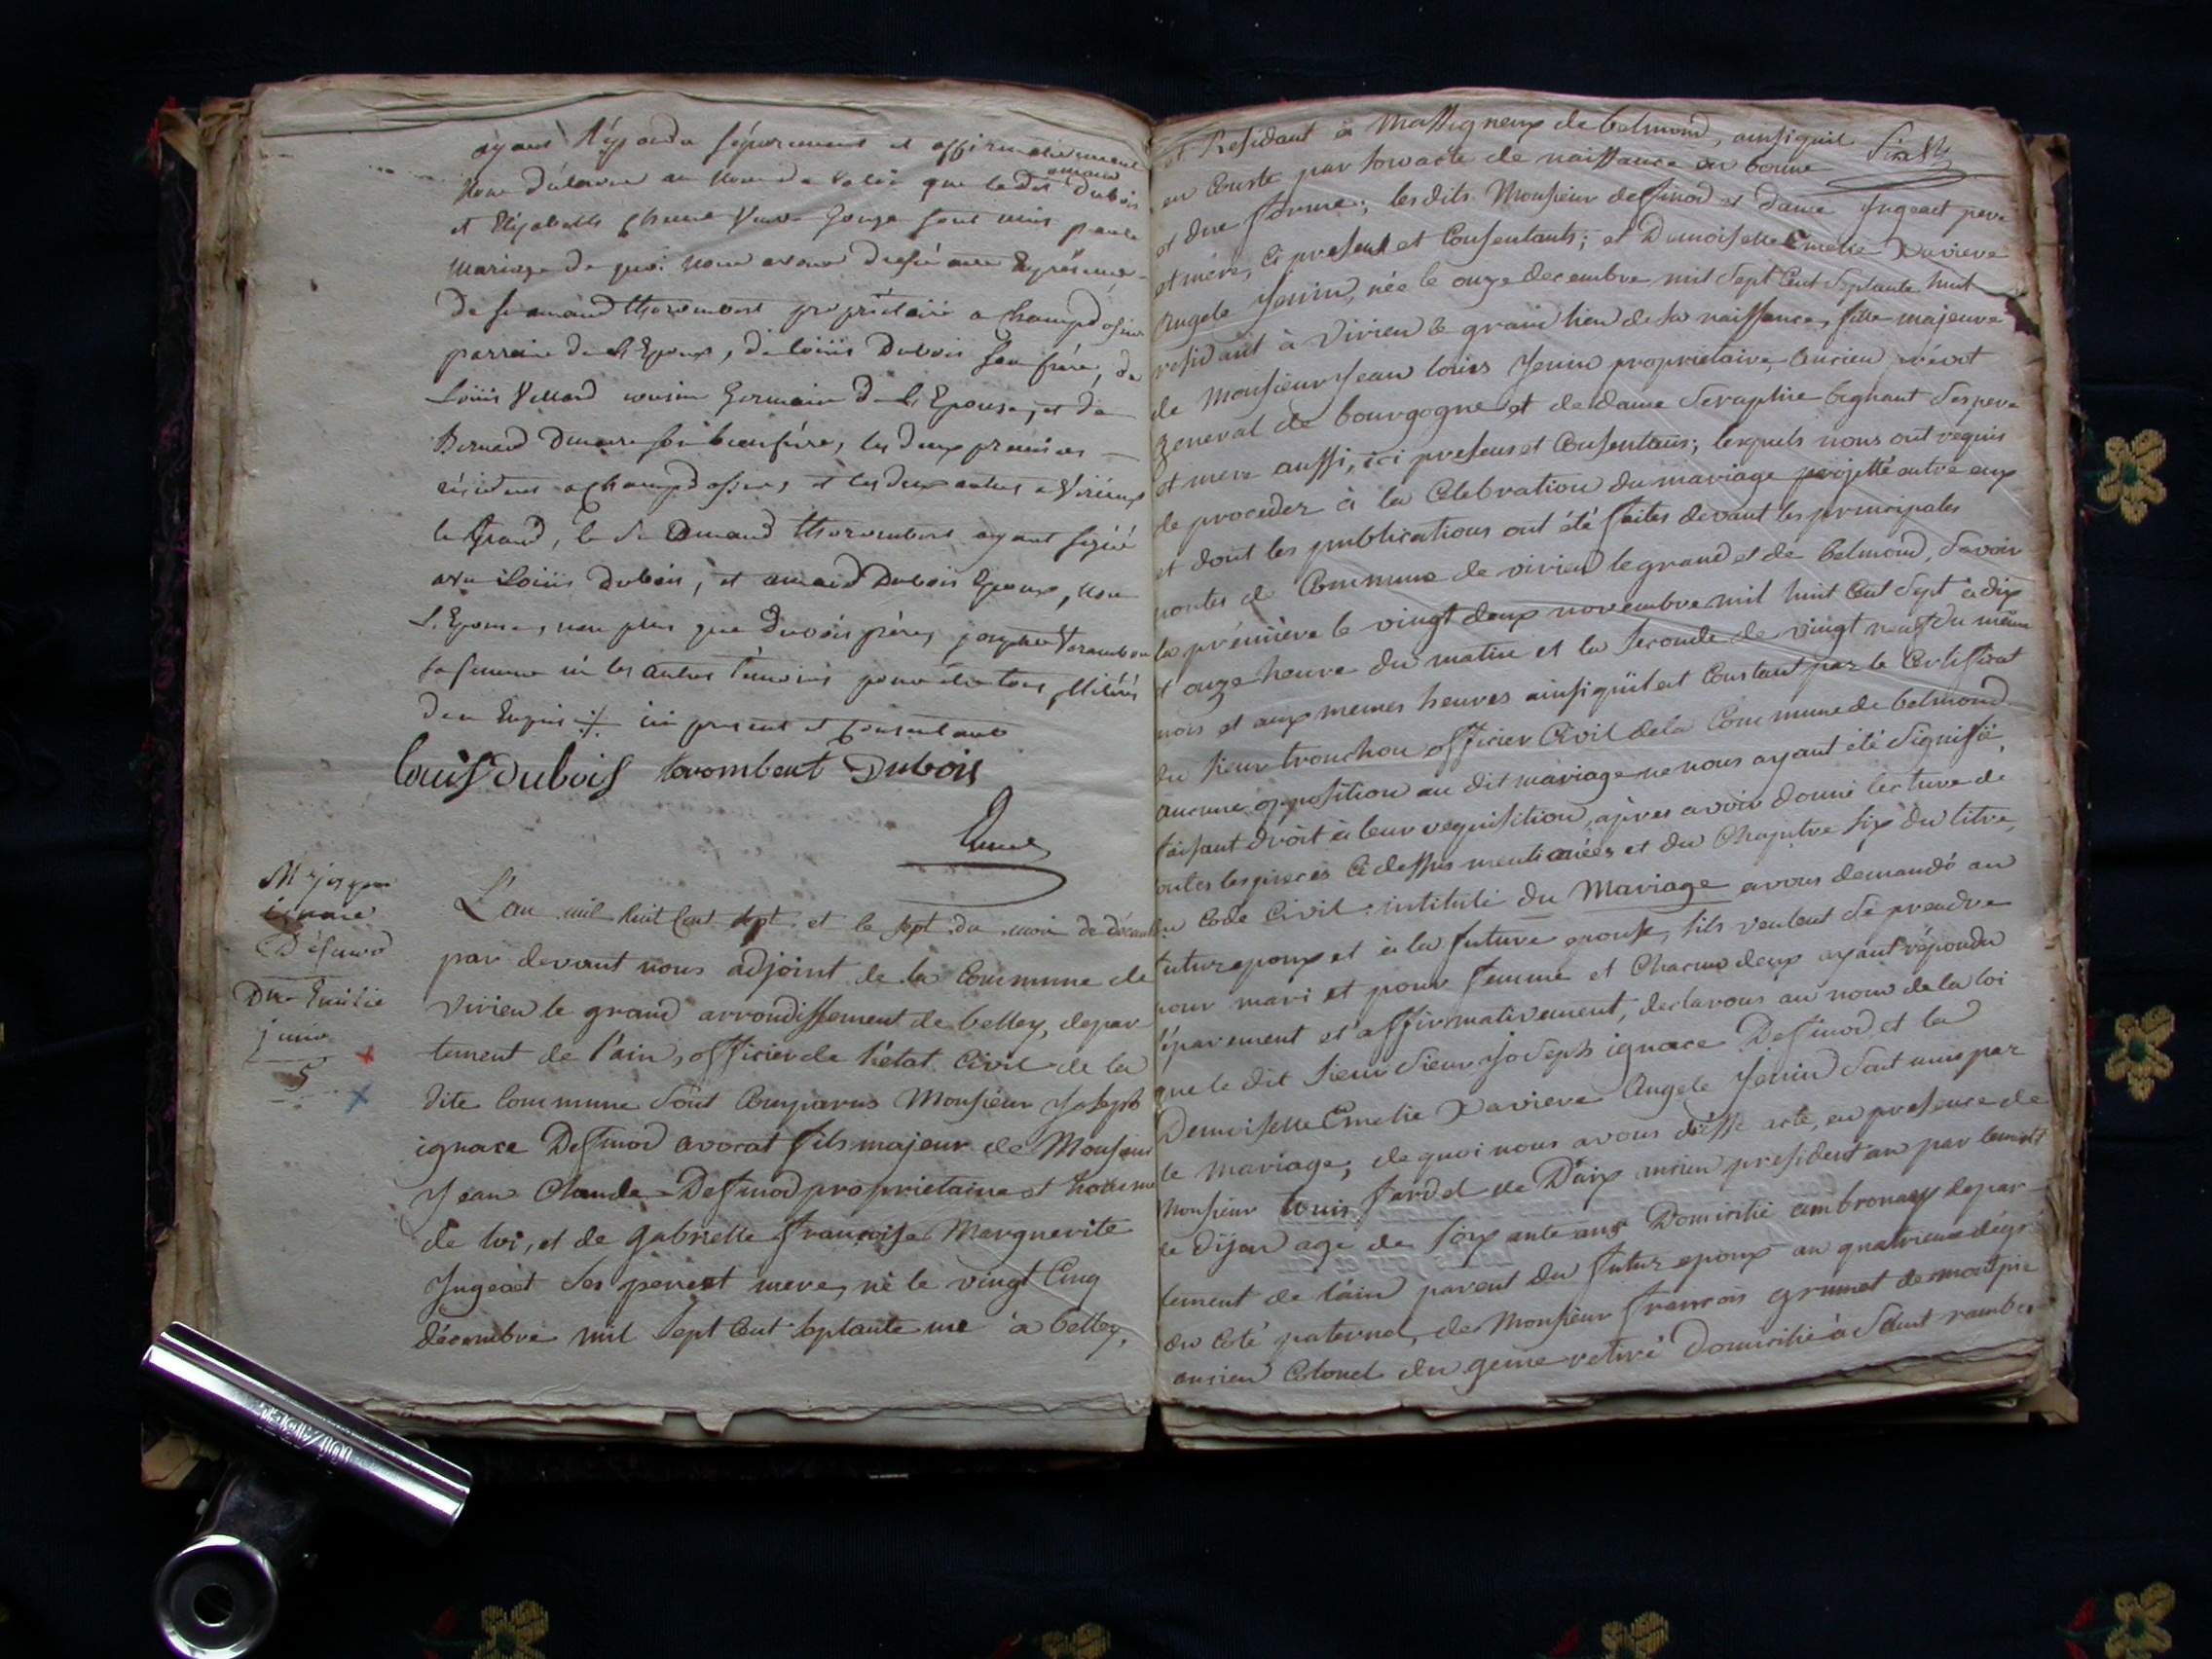 ayant Répondu séparement et affirmativement
nous déclarons au nom de la loi que ledit amand Dubois
et Elizabeth veuve Gouge sont unis par le
mariage de quoi nous avons dressé acte En présence
de sr amand thorombert propriétaire a Champdossin
parrain de L'Epoux, de louis Dubois son frère, de
Louis Villard cousin Germain de L'Epouse, et de
Bernard son beaufrère, les deux premiers
résidens a Champdossin, et les deux autres a Virieux
le Grand, le Sr amand thorombert ayant signé
avec Louis Dubois, et amand Dubois Epoux, non
L'Epouse, non plus que Dubois père, joseph
sa femme ni les autres témoins pour être tous illitérés
de ce Enquis ∴ ici present et consentant
Louis Dubois torombert Dubois
Mr joseph
ignace
Désinod
Dlle Emilie
jenin
5
L'an mil huit Cent Sept et le sept du mois de décembre
par devant nous adjoint de la Commune de
Virieu le grand arrondissement de belley, depar
tement de l'ain, officier de l'état Civil de la
dite Commune Sont Comparus Monsieur Joseph
ignace Desinod avocat fils majeur de Monsieur
Jean Claude Desinod proprietaire et homme
de loi, et de Gabrielle françoise Marguerite
Jugeat Ses pere et mere, né le vingt Cinq
décembre mil Sept Cent Septante une à belley,
et Residant à Massigneux de belmond, ainsi quil
en Conste par son acte de naissance en bonne
et due forme; les dits Monsieur dessinod et dame Jugeact pere
et mère, Ci présent et Consentants; et Demoiselle Emelie Xaviere
Angele Jenin, née le onze decembre mil Sept Cent Septante huit
residant à Virieu le grand lieu de sa naissance, fille majeure
de Monsieur Jean louis Jenin proprietaire, ancien
general de bourgogne et de dame Seraphie Ses pere
et mere aussi, ici presens et Consentans; lesquels nous ont requis
de proceder à la Célébration du mariage projetté entre eux
et dont les publications ont été faites devant les principales
portes de Commune de virieu le grand et de belmond, Savoir
la première le vingt deux novembre mil huit Cent Sept à dix
et onze heure du matin et la seconde le vingt neuf du même
mois et aux memes heures ainsi quil est Constant par le Certificat
du sieur tronchon officier Civil de la Commune de belmond
aucune opposition au dit mariage ne nous ayant été signifié,
faisant droit à leur requisition, après avoir donné lecture de
toutes les pieces Ci dessus mentionées et du Chapitre Six du titre
du Code Civil intitulé du Mariage avons demandé au
futur epoux et à la future epouse, sils veulent Se prendre
pour mari et pour femme et Chacun deux ayant répondu
séparement et affirmativement, declarons au nom de la loi
que le dit Sieur Sieur Joseph ignace Desinod et la
Demoiselle Emelie Xaviere Angele Jenin Sont unis par
le mariage; de quoi nous avons dressé acte, en presence de
Monsieur louis fardel de Daix ancien president au parlement
de Dijon agé de Soixante ans Domicilié ambronay depar
tement de l'ain parent du futur epoux au quatrieme dégré
du Coté paternel, de Monsieur francois grumet de montpie
ancien Colonel du genie retiré Domicilié à Saint rambert